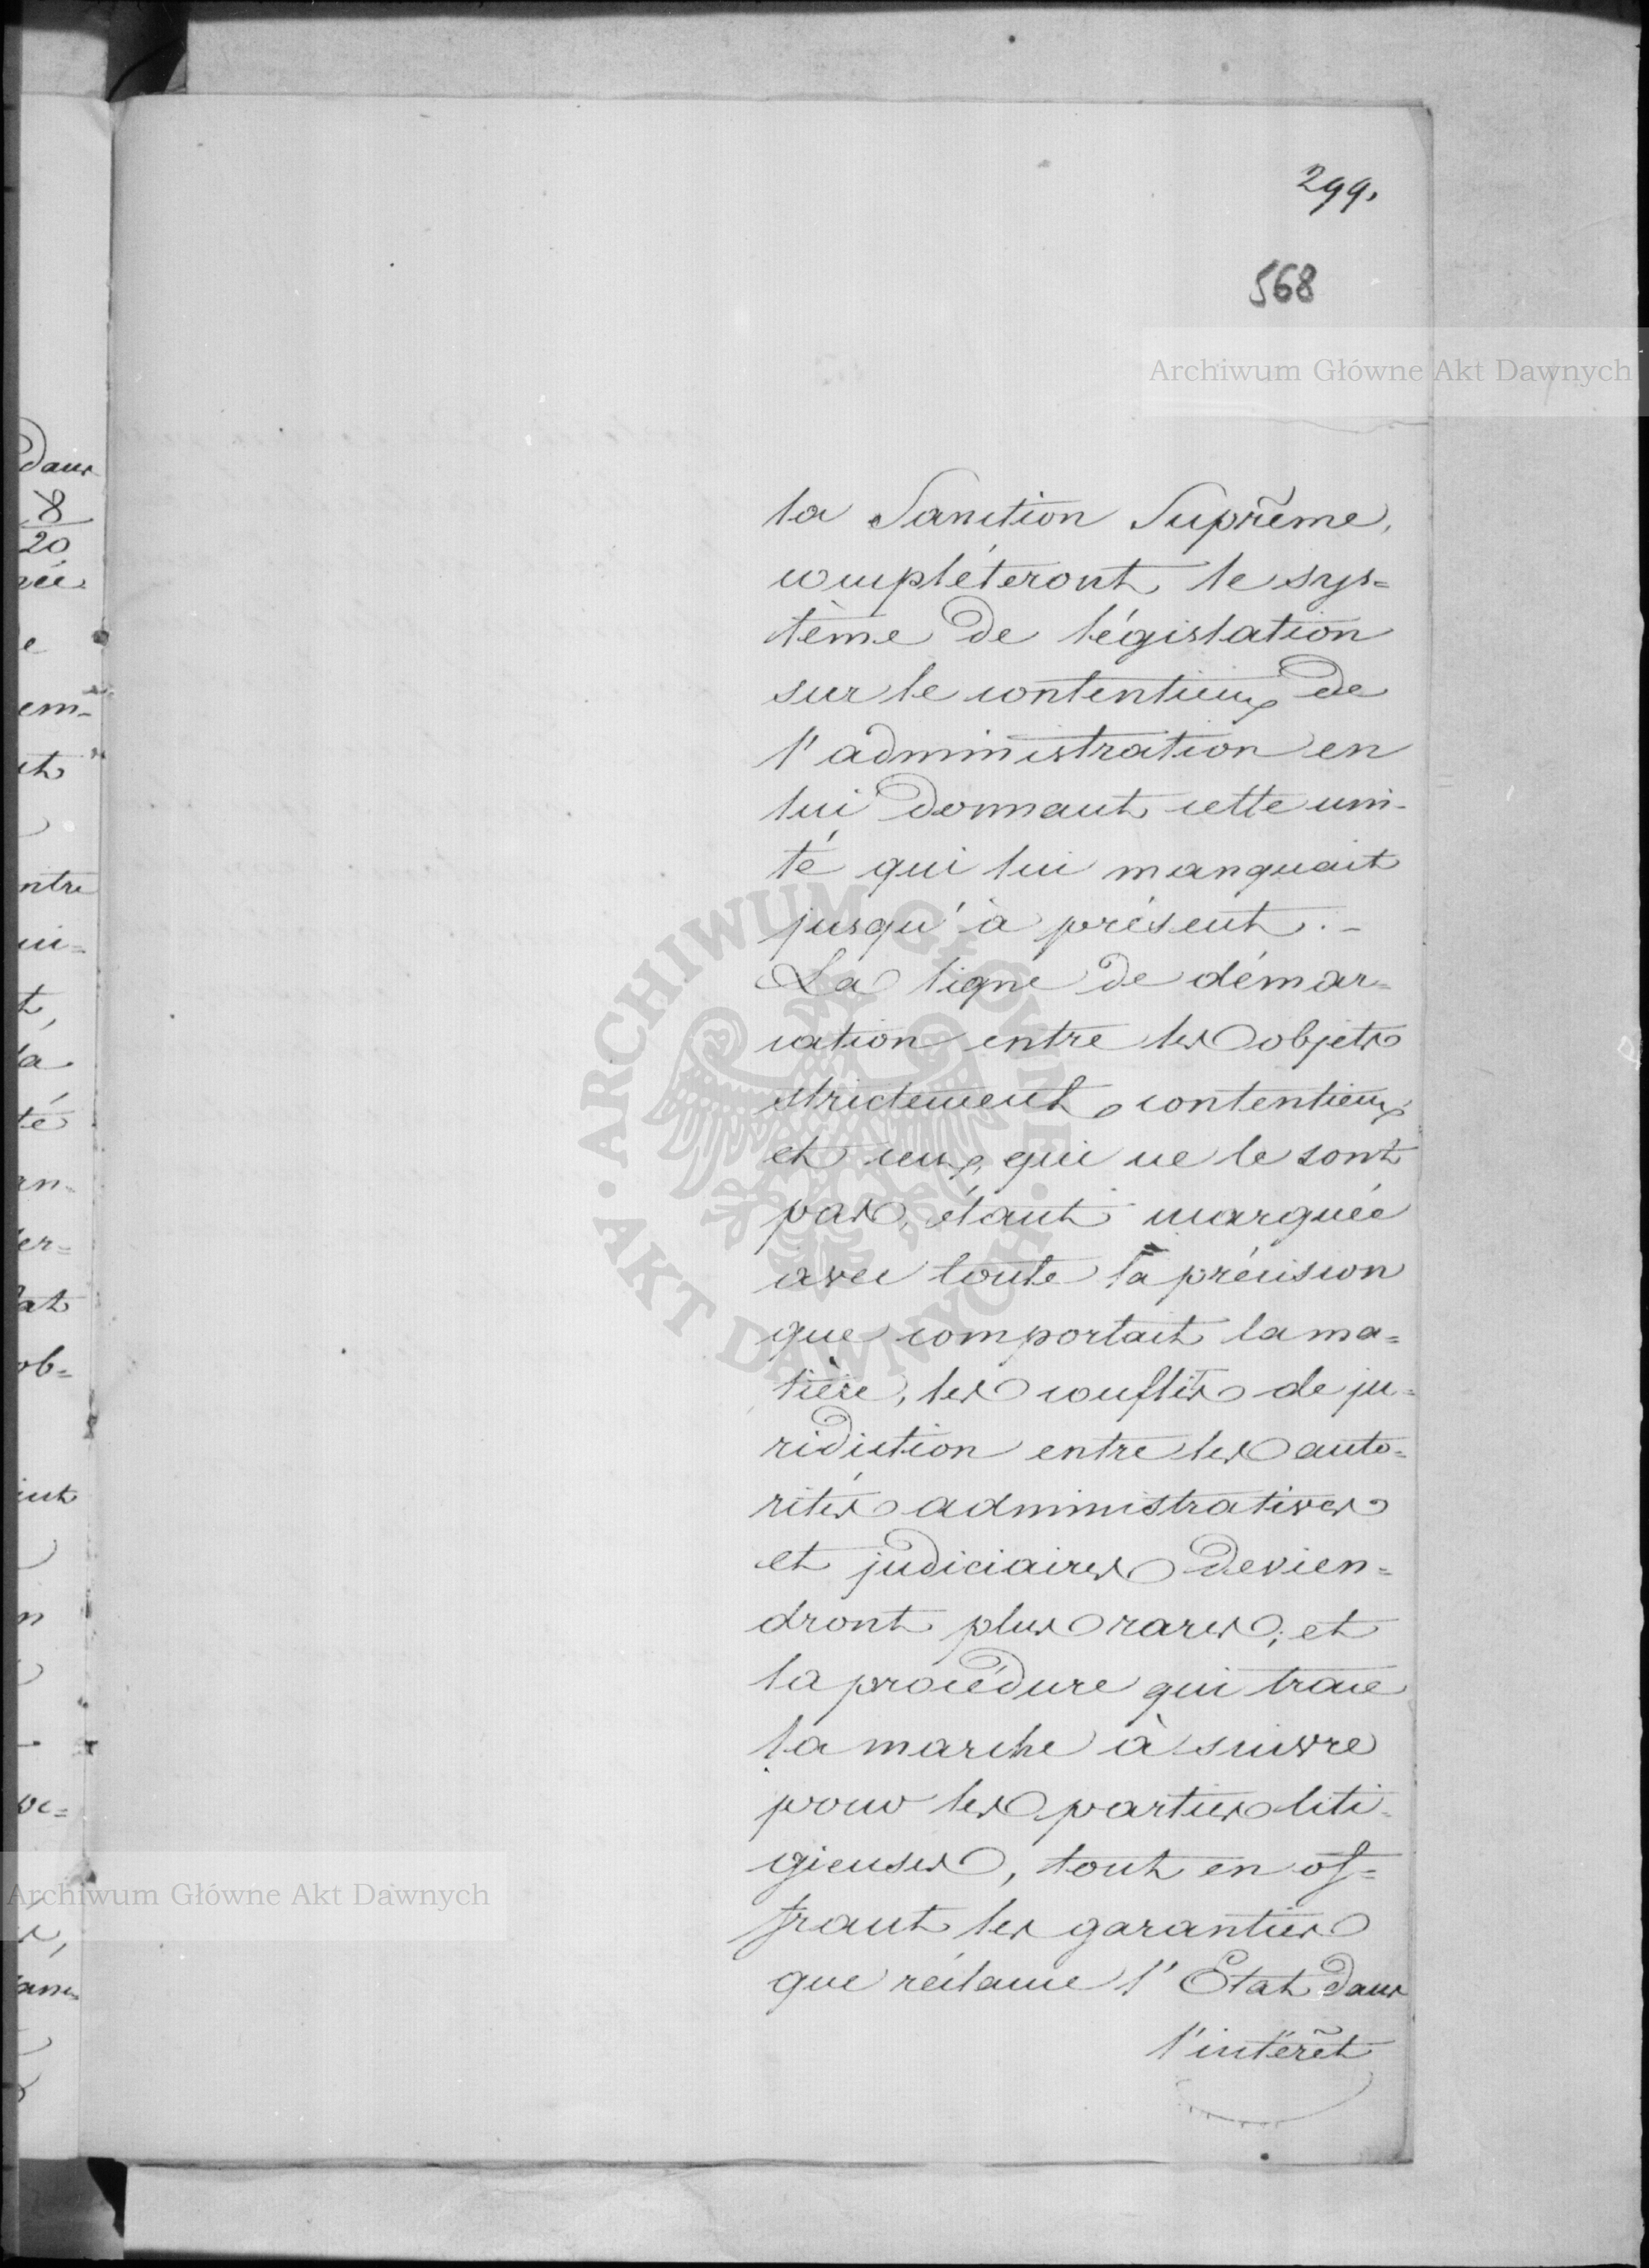 299.
568
Archiwum Główne Akt Dawnych
la Sanction Suprême,
compléteront le sys=
tème de législation
sur le contentieux de
l'administration en
lui donnant cette uni-
té qui lui manquait
jusqu'à présent. -
La ligne de démar=
cation entre les objets
strictement contentieux
et ceux, qui ne le sont
pas, étant marquée
avec toute la précision
que comportait la ma=
tière, les conflits de ju=
ridiction entre les auto=
rités administratives
et judiciaires devien=
dront plus rares; et
la procédure qui trace
la marche à suivre
pour les parties liti-
gieuses, tout en of=
frant les garanties
que réclame l'Etat dans
l'intérêt
ARCHIWUM GŁÓWNE · AKT DAWNYCH ·
Archiwum Główne Akt Dawnych
dans
8
20
née
e
em-
nt
ntre
ui=
t,
la
té
an-
er=
at
ob=
n
ve=